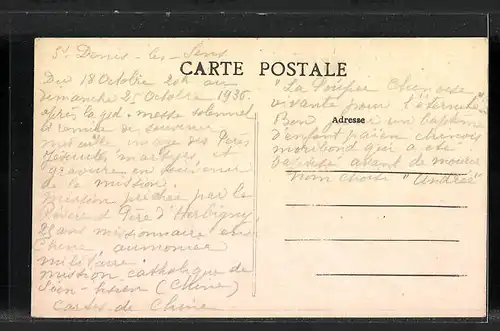 St Denis-les-Sens
CARTE POSTALE
Du 18 Octobre 20h au
dimanche 25 Octobre 1936
après la gd. messe solennel
la remise de souvenir
médaille image des Pères
Jésuites martyrs et
gravure en souvenir
de la mission.
Mission prêchée par le
Révérend Père d'Herbigny
25 ans missionnaire en
Chine, aumonier
militaire.
mission catholique de
Sien-hsien (Chine)
Cartes de Chine
"La Poupée Chinoise
vivante pour l'éternité"
Adresse
Bon pour un baptême
d'enfant païen chinois
moribond qui a été
baptisé avant de mourir
nom choisi "Andrée"